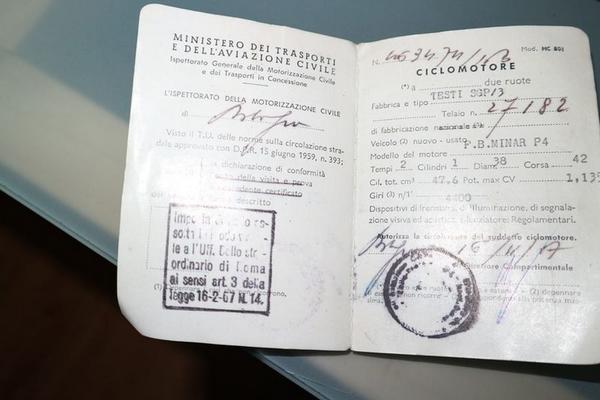 MINISTERO DEI TRASPORTI
E DELL'AVIAZIONE CIVILE
Ispettorato Generale della Motorizzazione Civile
e dei Trasporti in Concessione
L'ISPETTORATO DELLA MOTORIZZAZIONE CIVILE
di
Visto il T.U. delle norme sulla circolazione stra-
dale approvato con D.P.R. 15 giugno 1959, n. 393;
la dichiarazione di conformità
della visita e prova
certificato
descritto
le a l'Uff. Bollo stra-
ordinario di Roma
ai sensi art. 3 della
legge 16-2-67 N. 14.
N.
Mod. MC 801
CICLOMOTORE
(*) a due ruote
Fabbrica e tipo TESTI SGP13
Telaio n. 27182
di fabbricazione nazionale
Veicolo (2) nuovo - usato
Modello del motore P.B.MINAR P4
Tempi 2 Cilindri 1 Diam. 38 Corsa 42
Cil. tot. cm³ 47,6 Pot. max CV 1,135
Giri (3) n/1' 4400
Dispositivi di frenatura, di illuminazione, di segnala-
zione visiva ed acustica, silenziatore: Regolamentari.
Autorizza la circolazione del suddetto ciclomotore.
Compartimentale